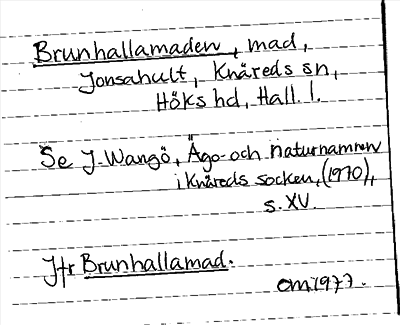 Brunhallamaden, mad,
Jonsahult, Knäreds sn,
Höks hd, Hall. l.
Se J. Wangö, Ägo- och naturnamnen
i Knäreds socken, (1970),
s. XV.
Jfr Brunhallamad.
EM 1977.